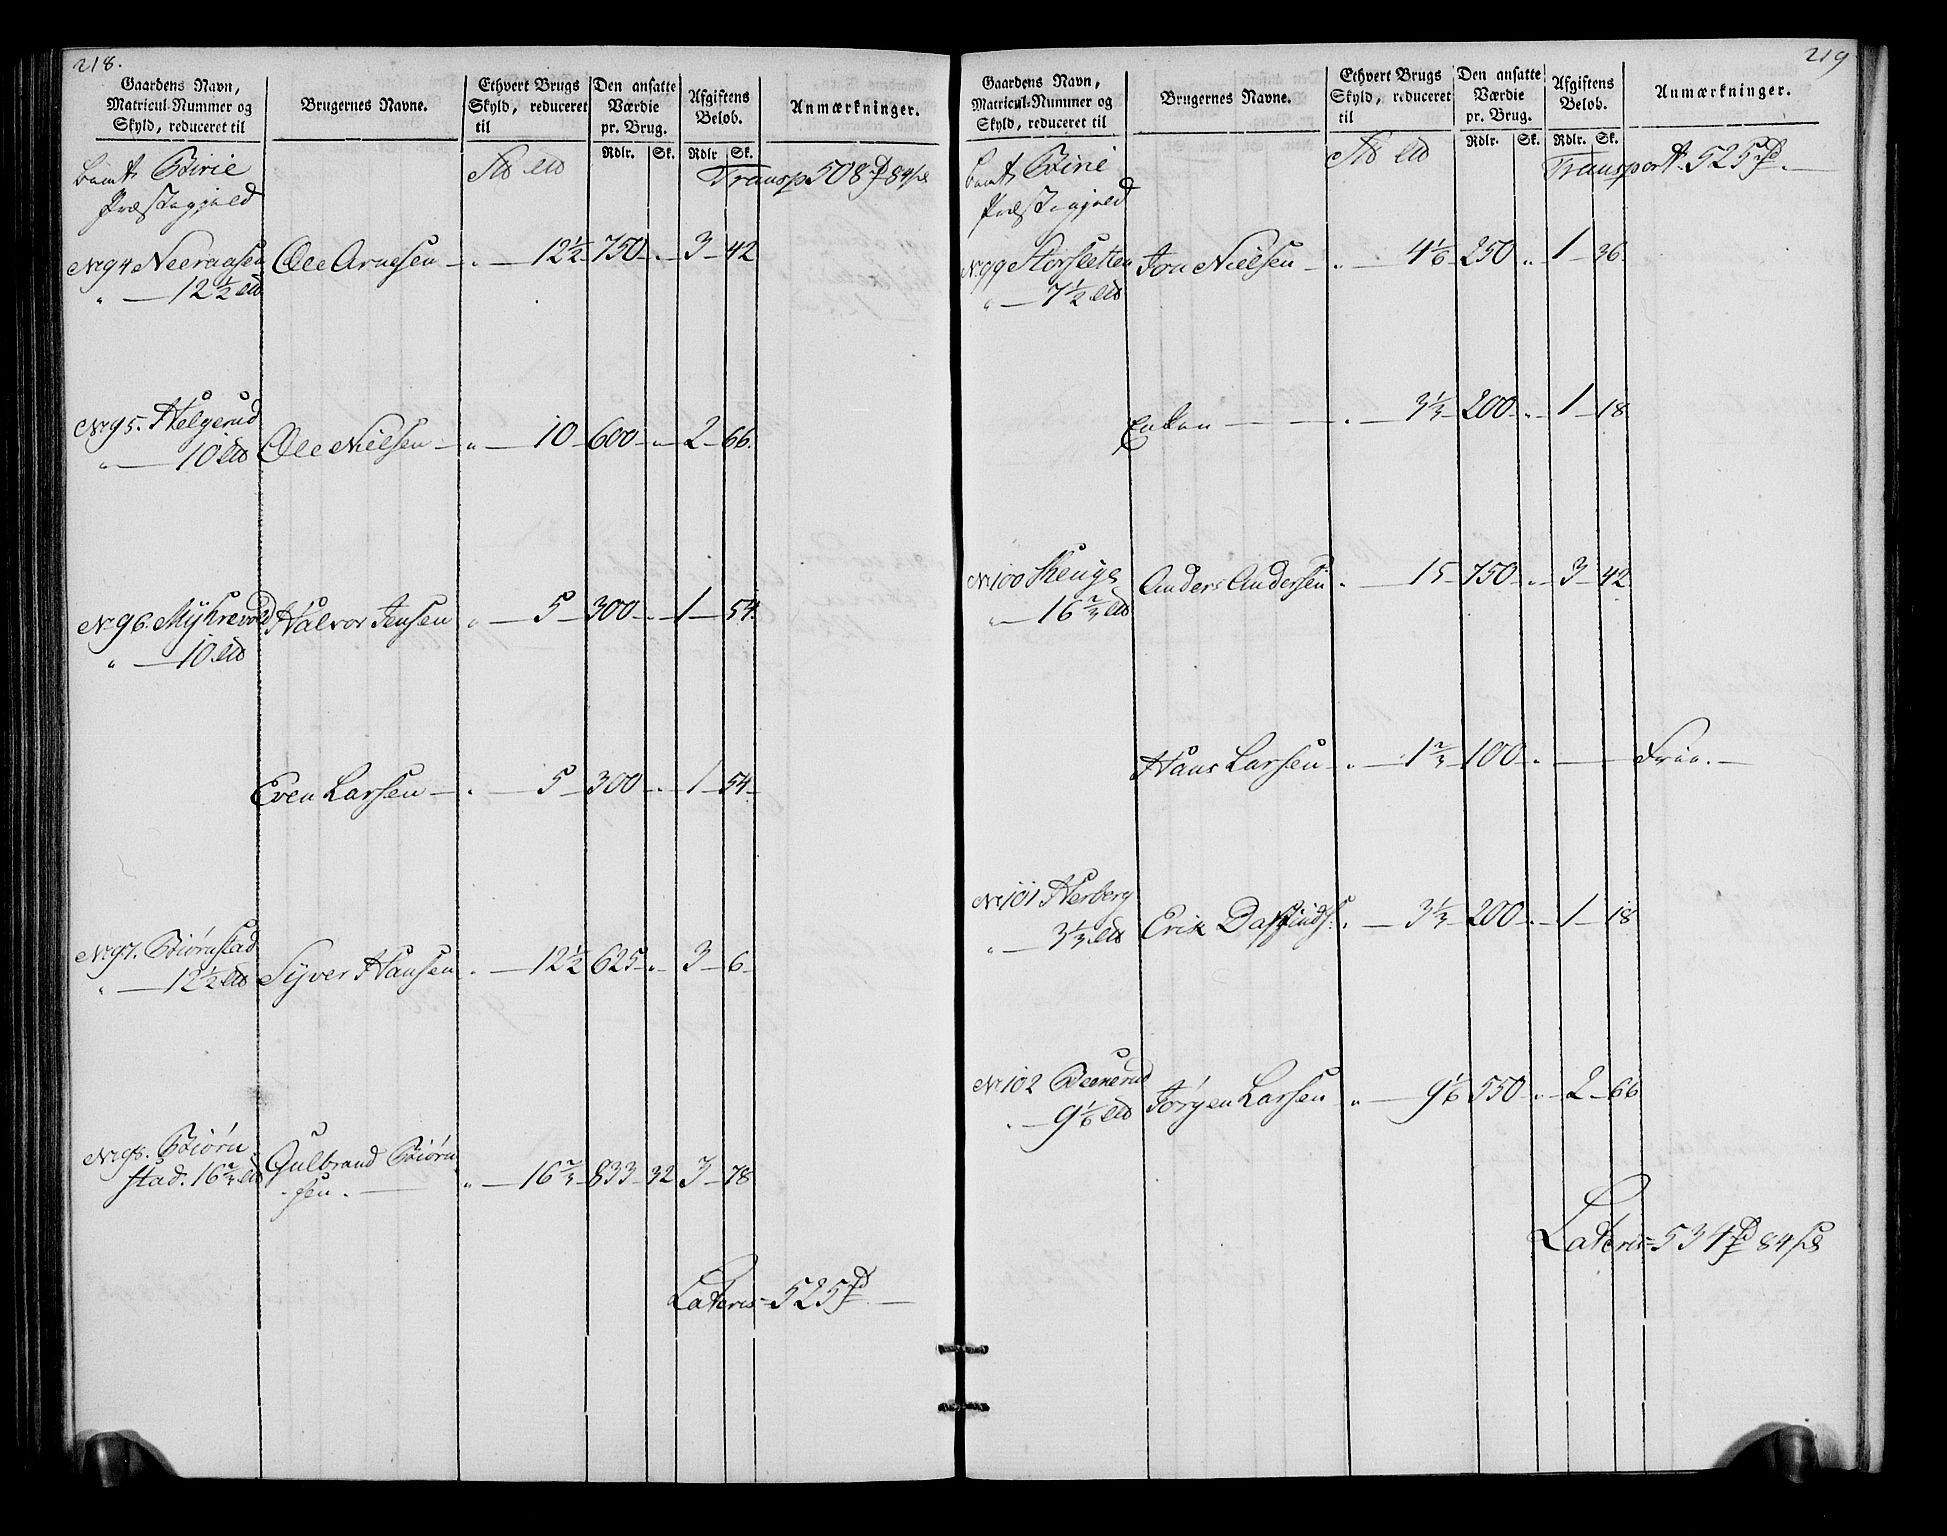 218.
Gaardens Navn, Matricul-Nummer og Skyld, reduceret til
Brugernes Navne.
Ethvert Brugs Skyld, reduceret til
Den ansatte Værdie pr. Brug.
Afgiftens Beløb.
Anmærkninger.
Rdlr. Sk. Rdlr Sk.
Birie
Præstegjeld
Transp 508 84
No 94 Neeraasen Ole Arnesen 12½ 750 3 42
12½
No 95. Helgerud
10 Ole Nielsen 10 600 2 66.
No 96. Myhrevold Halvor Jensen 5 300 1 54.
10
Even Larsen 5 300 1 54.
No 97. Biørnstad
12½ Syver Hansen 12½ 625 3 6
No 98. Biørn
stad. 16⅔ Gulbrand Biørn
sen. 16⅔ 833 32 3 78
Lateris 525
219
Gaardens Navn, Matricul-Nummer og Skyld, reduceret til
Brugernes Navne.
Ethvert Brugs Skyld, reduceret til
Den ansatte Værdie pr. Brug.
Afgiftens Beløb.
Anmærkninger.
Rdlr. Sk. Rdlr. Sk.
Birie
Præstegjeld
Transport 525
No 99 Storsletten Jon Nielsen 4⅙ 250 1 36.
7½
Enken 3⅓ 200 1 18
No 100 Anders Andersen 15 750 3 42
16⅔
Hans Larsen 1⅔ 100 Frie.
No 101 Herberg
3⅓ Erik 3⅓ 200 1 18
No 102
9⅙ Jørgen Larsen 9⅙ 550 2 66
Lateris 534 84